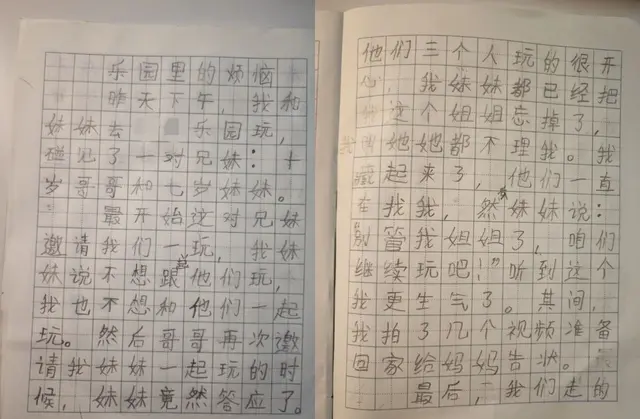 乐园里的烦恼
昨天下午，我和
妹妹去乐园玩，
碰见了一对兄妹：十
岁哥哥和七岁妹妹。
最开始这对兄妹
邀请我们一玩，我妹
妹说不想跟他们玩，
我也不想和他们一起
玩。然后哥哥再次邀
请我妹妹一起玩的时
候，妹妹竟然答应了。
他们三个人玩的很开
心，我妹妹都已经把
这个姐姐忘掉了，
她她都不理我。我
藏起来了，他们一直
在找我，然妹妹说：
别管我姐姐了，咱们
继续玩吧！”听到这个
我更生气了。其间，
我拍了几个视频准备
回家给妈妈告状。
最后，我们走的